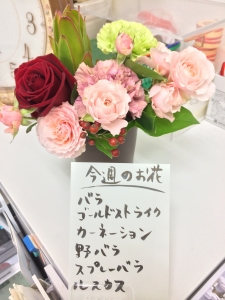 今週のお花
バラ
ゴールドストライク
カーネーション
野バラ
スプレーバラ
ルスカス